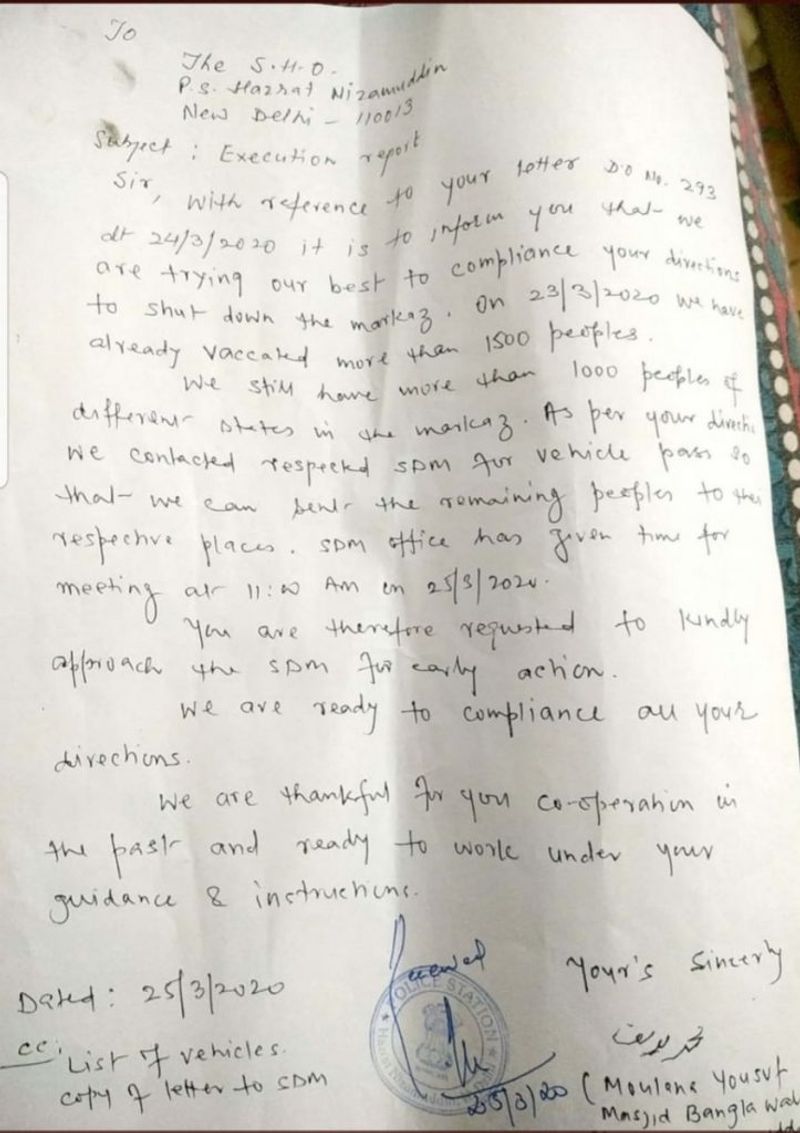 To
The S.H.O.
P.S. Hazrat Nizamuddin
New Delhi - 110013
Subject : Execution report
Sir,
With reference to your letter D.O No. 293
dt 24/3/2020 it is to inform you that we
are trying our best to compliance your directions
to shut down the markaz. On 23/3/2020 we have
already vaccated more than 1500 peoples.
We still have more than 1000 peoples of
different states in the markaz. As per your directi
we contacted respected SDM for vehicle pass so
that we can sent the remaining peoples to the
respective places. SDM office has given time for
meeting at 11:00 AM on 25/3/2020.
You are therefore requested to kindly
approach the SDM for early action.
We are ready to compliance all your
directions.
We are thankful for you co-operation in
the past and ready to work under your
guidance & instructions.
Your's Sincerly
Dated : 25/3/2020
cc: List of vehicles.
copy of letter to SDM
POLICE STATION
25/3/20
محمد یوسف
(Moulana Yousuf
Masjid Bangla wal